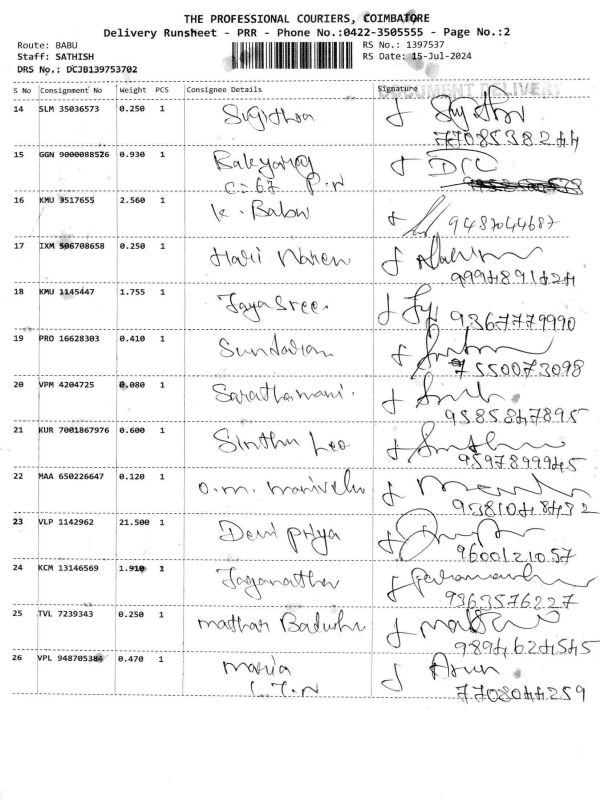 THE PROFESSIONAL COURIERS, COIMBATORE
Delivery Runsheet - PRR - Phone No.:0422-3505555 - Page No.:2
Route: BABU RS No.: 1397537
Staff: SATHISH RS Date: 15-Jul-2024
DRS No.: DCJB139753702
DOCUMENT DELIVERY
S No Consignment No Weight PCS Consignee Details Signature
14 SLM 35036573 0.250 1
7708538244
15 GGN 9000088526 0.930 1
C=67 P.N
16 KMU 3517655 2.560 1 K. Babu
9487044687
17 IXM 506708658 0.250 1 Hari Naren
9994891424
18 KMU 1145447 1.755 1 Jaya Sree.
9367779990
19 PRO 16628303 0.410 1 Sundaram
7550073098
20 VPM 4204725 0.080 1 Sarathamani.
9585847895
21 KUR 7001867976 0.600 1 Sinthu Leo
9597899945
22 MAA 650226647 0.120 1 O.M. Manivelu
9381048432
23 VLP 1142962 21.500 1 Devi Priya
9600121057
24 KCM 13146569 1.910 1 Jaganathan
9363576227
25 TVL 7239343 0.250 1 Mathar Badusha
9894624545
26 VPL 948705384 0.470 1 Maria Arun
7708044259